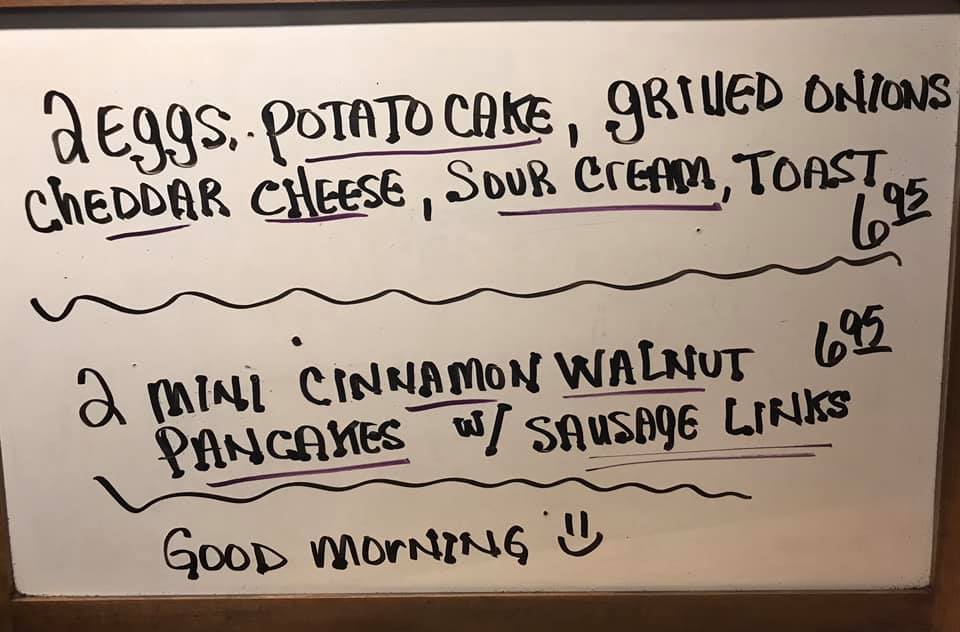 2 Eggs, POTATO CAKE, gRILLED ONIONS
ChEDDAR CHEESE, SOUR CrEAM, TOAST
6 95
2 MINI CINNAMON WALNUT 6 95
PANCAKES w/ SAUSAgE LINKS
GOOD MOrNING